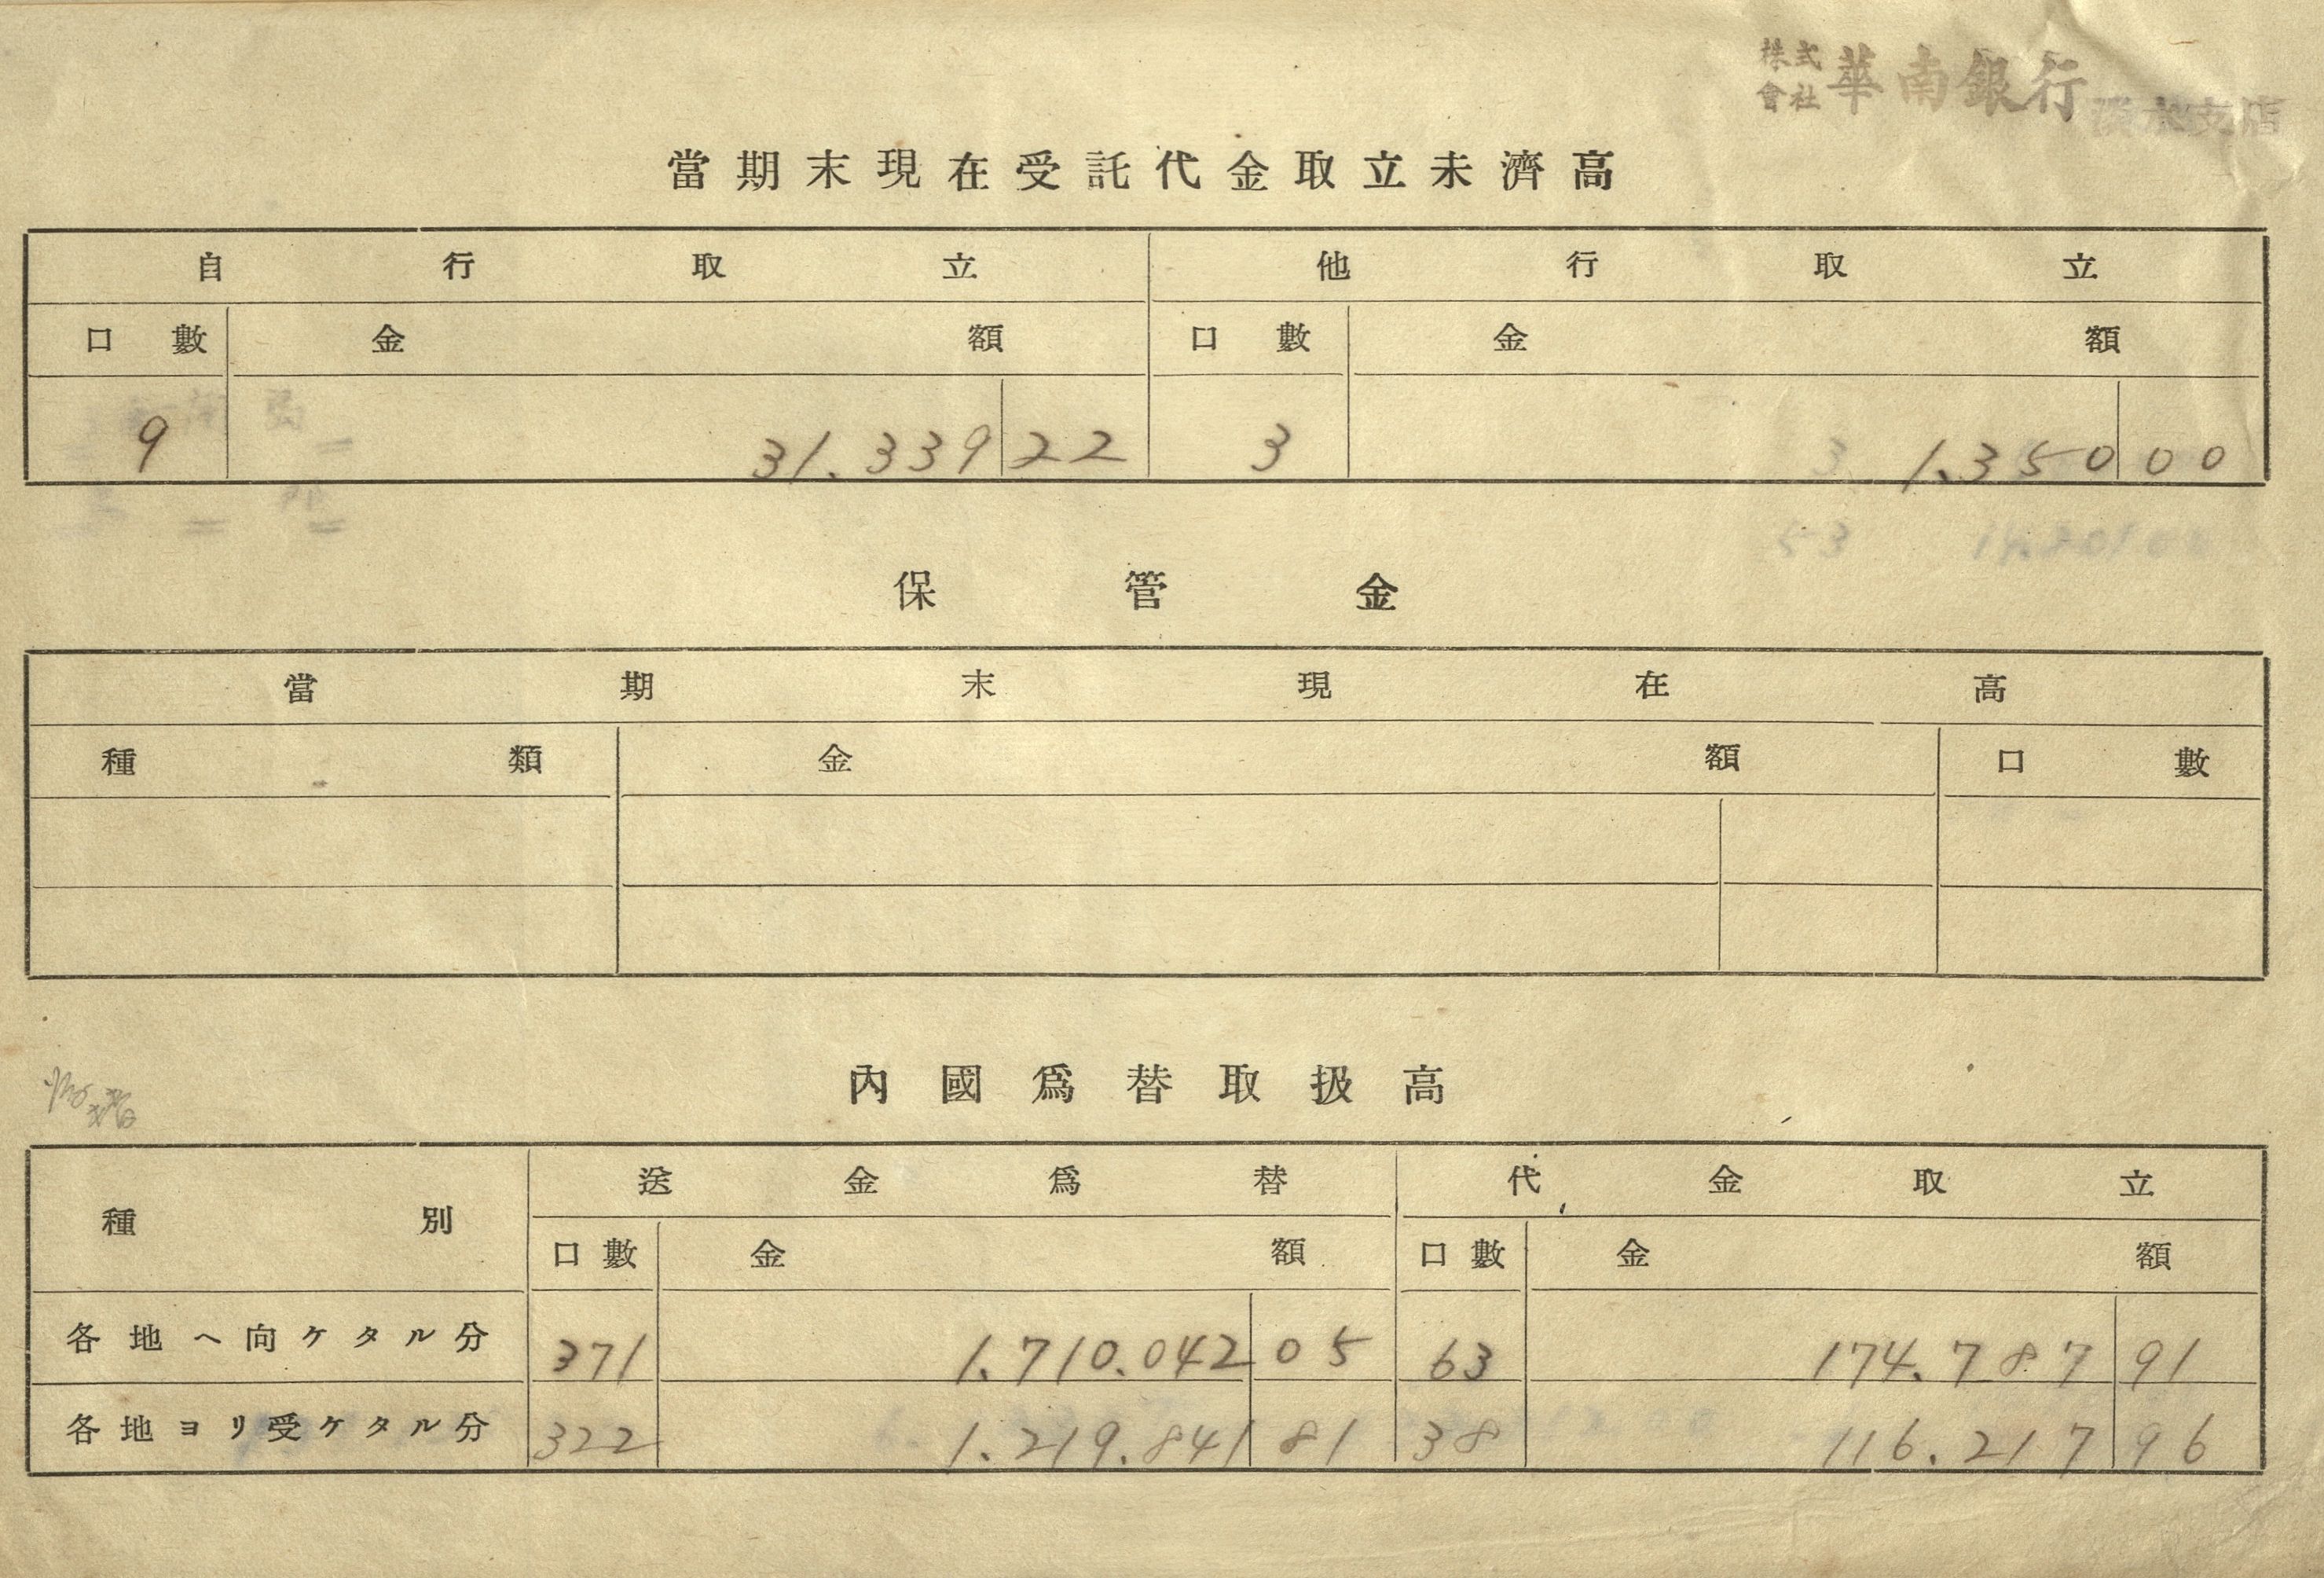 株式會社華南銀行淡水支店
當期末現在受託代金取立未濟高
自行取立 他行取立
口數 金額 口數 金額
9 31.339 22 3 1.350 00
保管金
當期末現在高
種類 金額 口數
內國爲替取扱高
種別 送金爲替 代金取立
口數 金額 口數 金額
各地ヘ向ケタル分 371 1.710.042 05 63 174.787 91
各地ヨリ受ケタル分 322 1.219.841 81 38 116.217 96